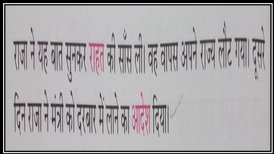 राजा ने यह बात सुनकर राहत की साँस ली। वह वापस अपने राज्य लौट गया। दूसरे
दिन राजा ने मंत्री को दरबार में लाने का आदेश दिया।